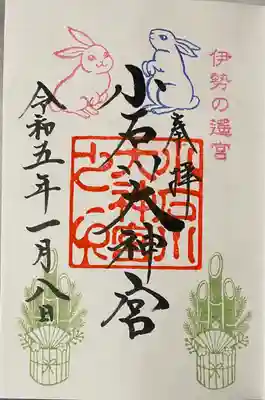 伊勢の遙宮
奉拝
小石川大神宮
令和五年一月八日
小石川
大神宮